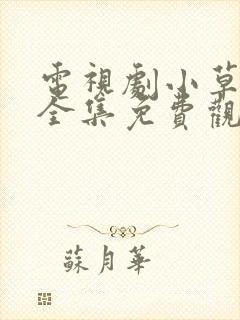 電視劇小草
全集免費觀
蘇月華